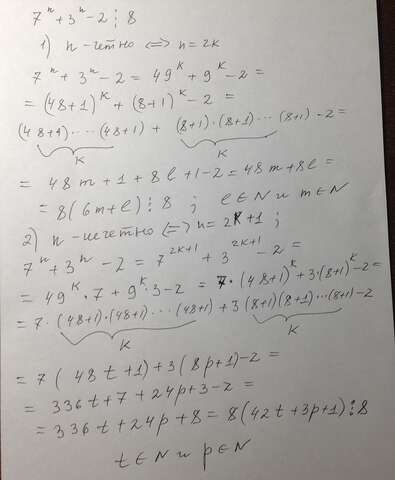 7ⁿ + 3ⁿ - 2 ⋮ 8
1) n - четно <=> n = 2k
7ⁿ + 3ⁿ - 2 = 49ᵏ + 9ᵏ - 2 =
= (48+1)ᵏ + (8+1)ᵏ - 2 =
(48+1) ... (48+1) + (8+1)·(8+1) ... (8+1) - 2 =
k k
= 48m + 1 + 8l + 1 - 2 = 48m + 8l =
= 8(6m + l) ⋮ 8 ; l ∈ N и m ∈ N
2) n - нечетно <=> n = 2k+1 ;
7ⁿ + 3ⁿ - 2 = 7²ᵏ⁺¹ + 3²ᵏ⁺¹ - 2 =
= 49ᵏ · 7 + 9ᵏ · 3 - 2 = 7 · (48+1)ᵏ + 3·(8+1)ᵏ - 2 =
= 7 · (48+1)·(48+1) ... (48+1) + 3 (8+1)(8+1) ... (8+1) - 2
k k
= 7 ( 48t + 1) + 3 (8p + 1) - 2 =
= 336t + 7 + 24p + 3 - 2 =
= 336t + 24p + 8 = 8(42t + 3p + 1) ⋮ 8
t ∈ N и p ∈ N